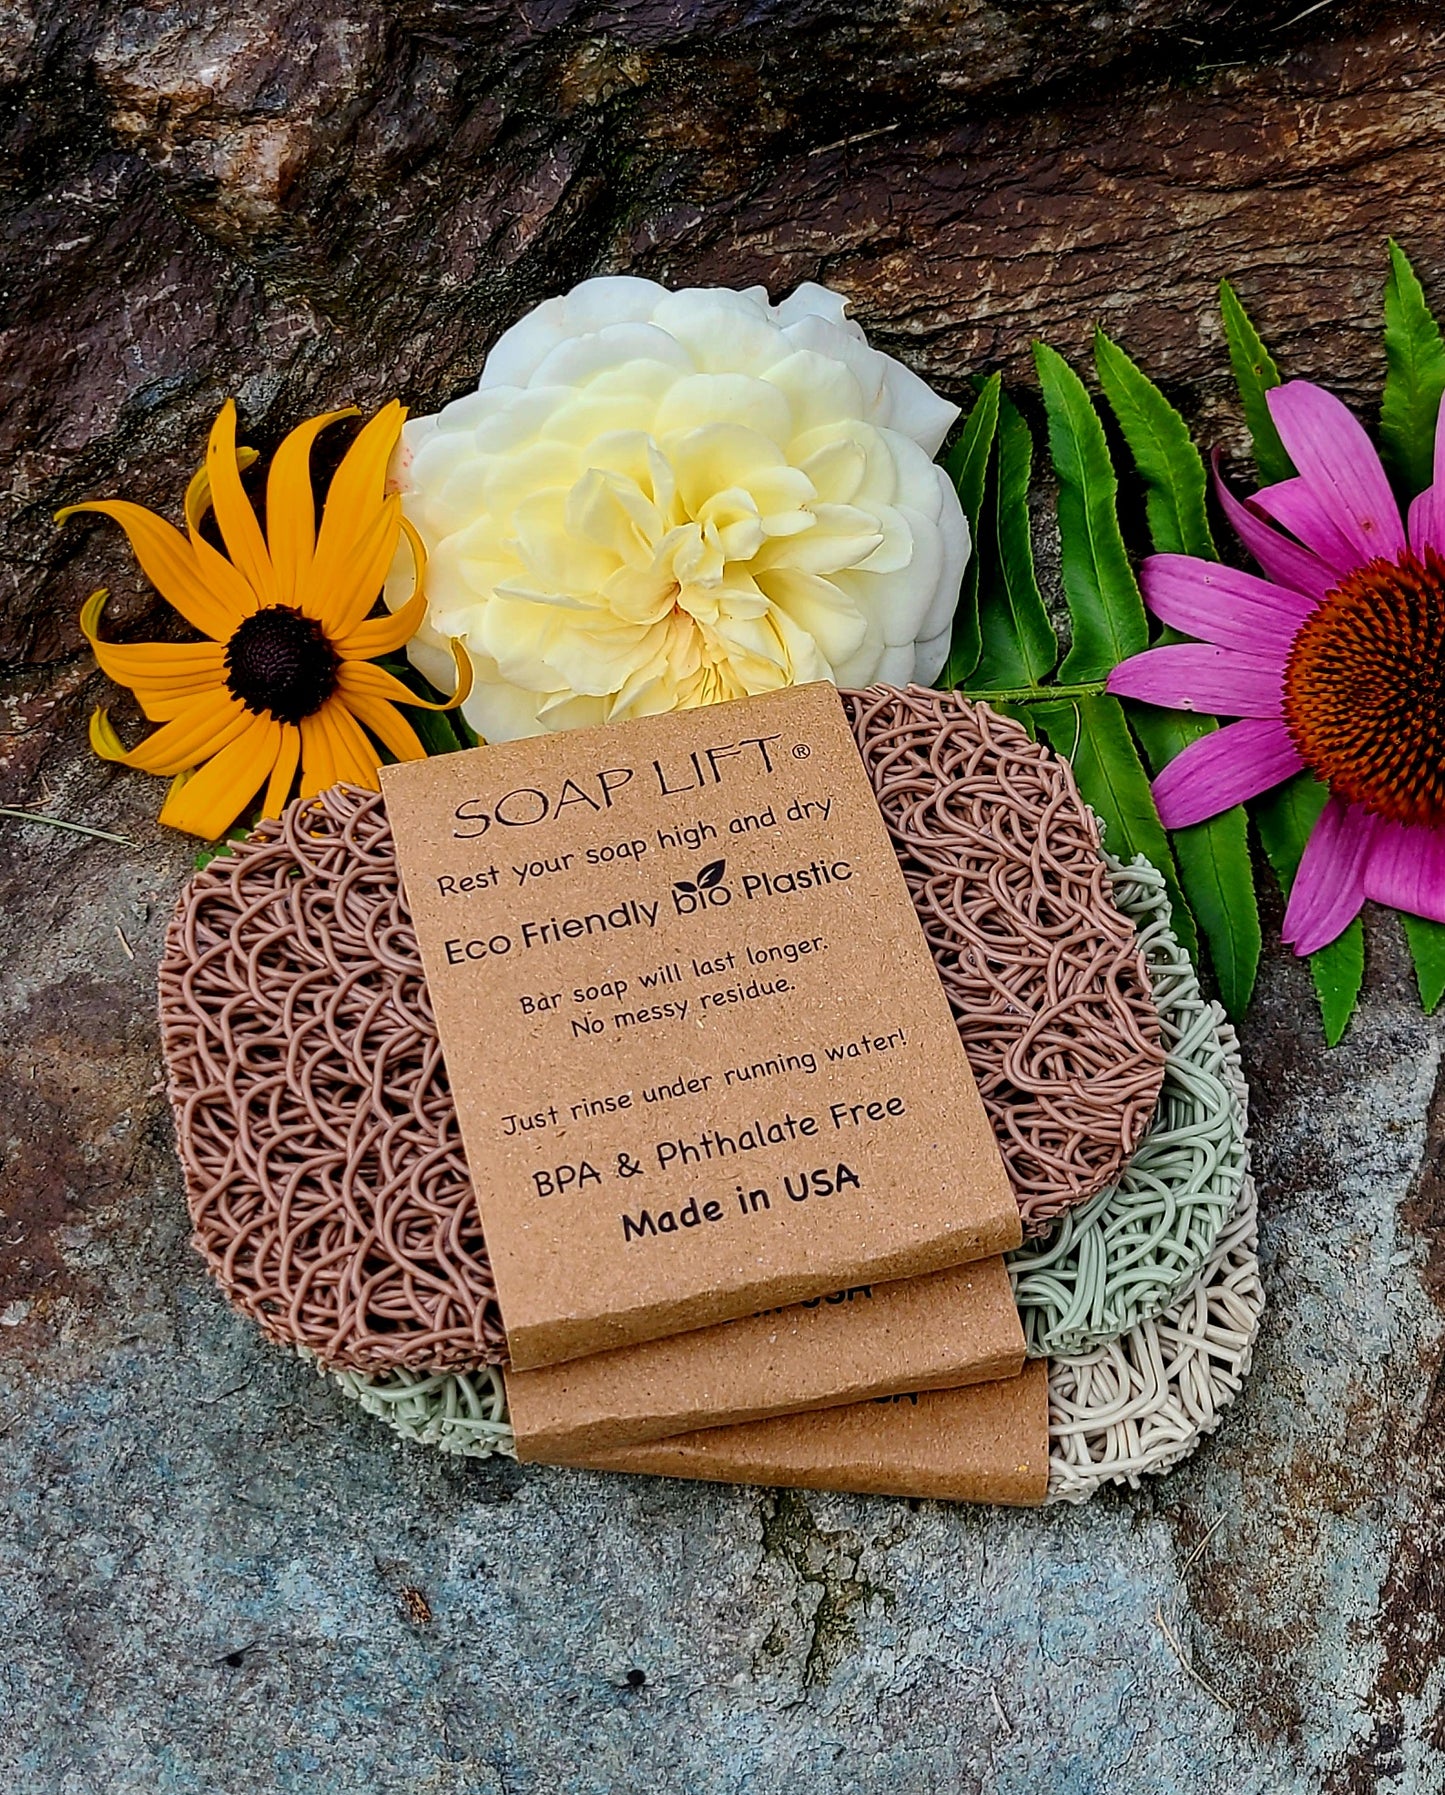 SOAP LIFT®
Rest your soap high and dry
Eco Friendly bio Plastic
Bar soap will last longer.
No messy residue.
Just rinse under running water!
BPA & Phthalate Free
Made in USA
in USA